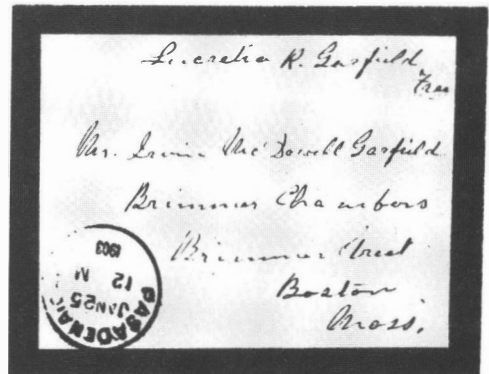 Lucretia R. Garfield
Free
Mr. Irvin McDowell Garfield
Brimmer Chambers
Brimmer Street
Boston
Mass.
PASADENA
JAN 25
12 M
1903